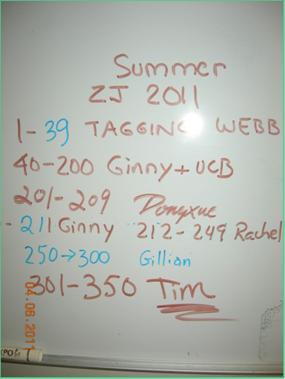 Summer
ZJ 2011
1-39 TAGGING WEBB
40-200 Ginny + UCB
201-209 Dongxue
- 211 Ginny 212-249 Rachel
250→300 Gillian
301-350 Tim
EXPO®